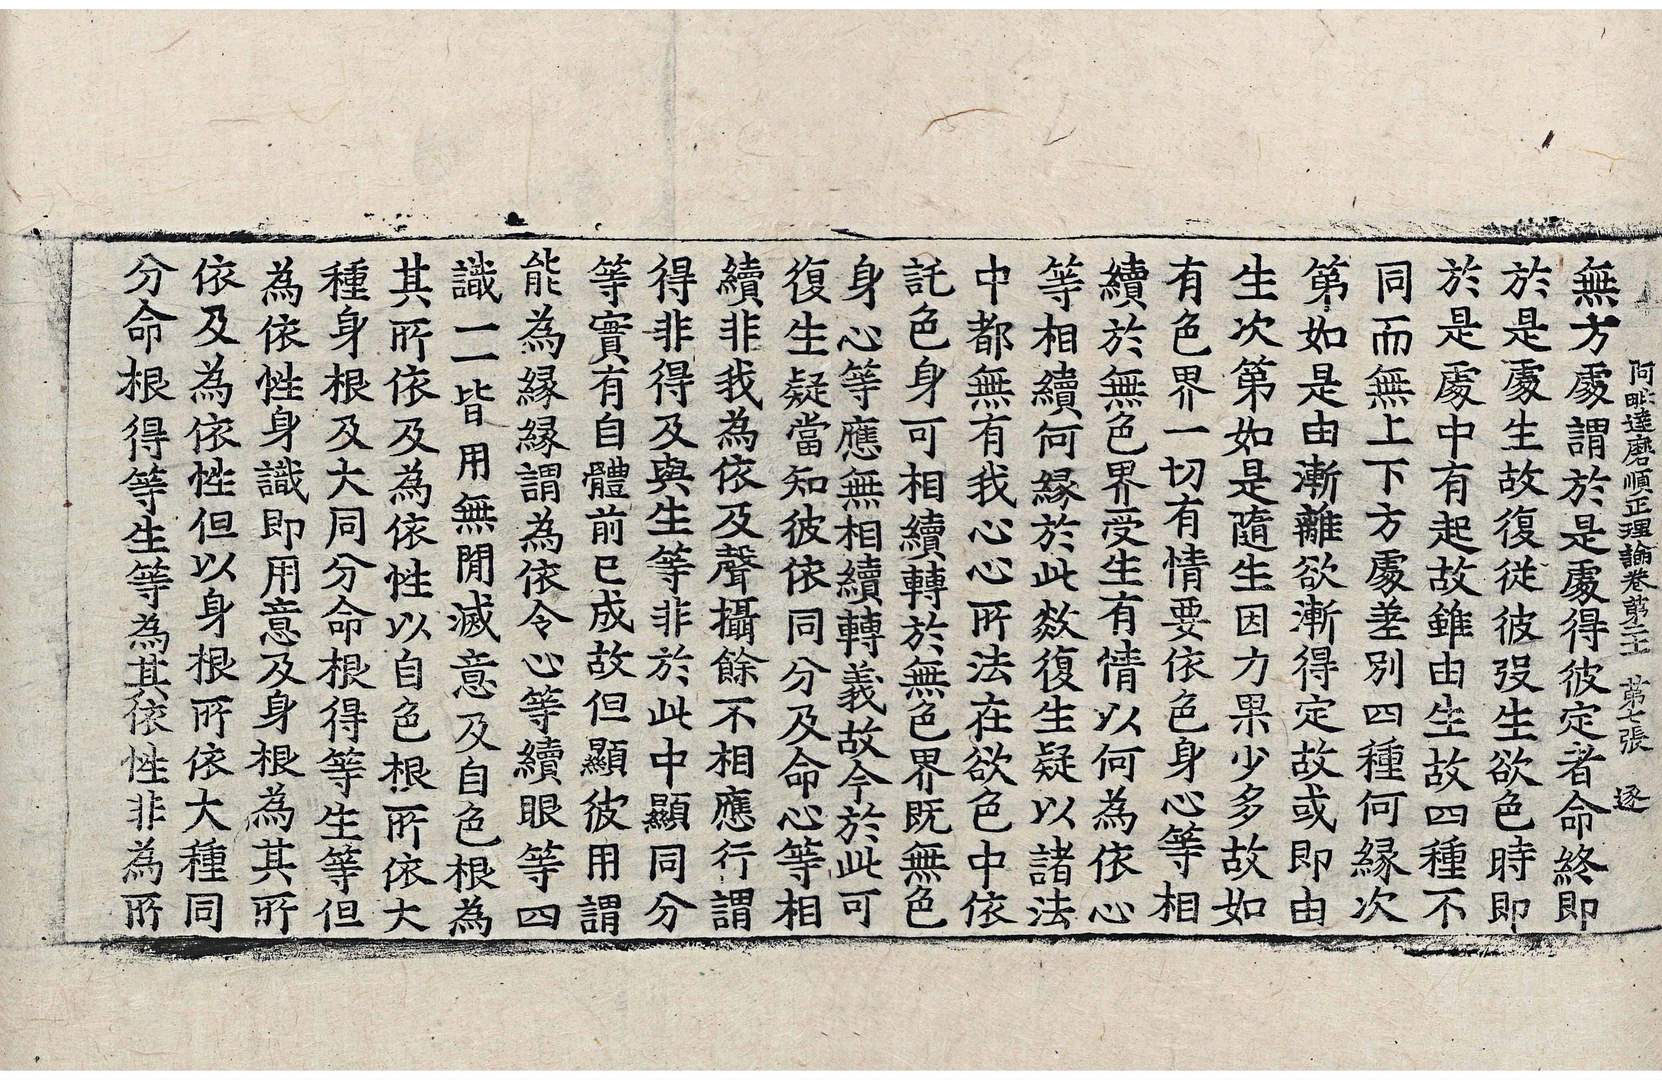 阿毗達磨順正理論卷第二十一 第七張 逐
無方處謂於是處得彼定者命終即
於是處生故復從彼歿生欲色時即
於是處中有起故雖由生故四種不
同而無上下方處差別四種何緣次
第如是由漸離欲漸得定故或即由
生次第如是隨生因力果少多故如
有色界一切有情要依色身心等相
續於無色界受生有情以何為依心
等相續何緣於此欻復生疑以諸法
中都無有我心心所法在欲色中依
託色身可相續轉於無色界既無色
身心等應無相續轉義故今於此可
復生疑當知彼依同分及命心等相
續非我為依及聲攝餘不相應行謂
得非得及與生等非於此中顯同分
等實有自體前已成故但顯彼用謂
能為緣緣謂為依令心等續眼等四
識一一皆用無閒滅意及自色根為
其所依及為依性以自色根所依大
種身根及大同分命根得等生等但
為依性身識即用意及身根為其所
依及為依性但以身根所依大種同
分命根得等生等為其依性非為所